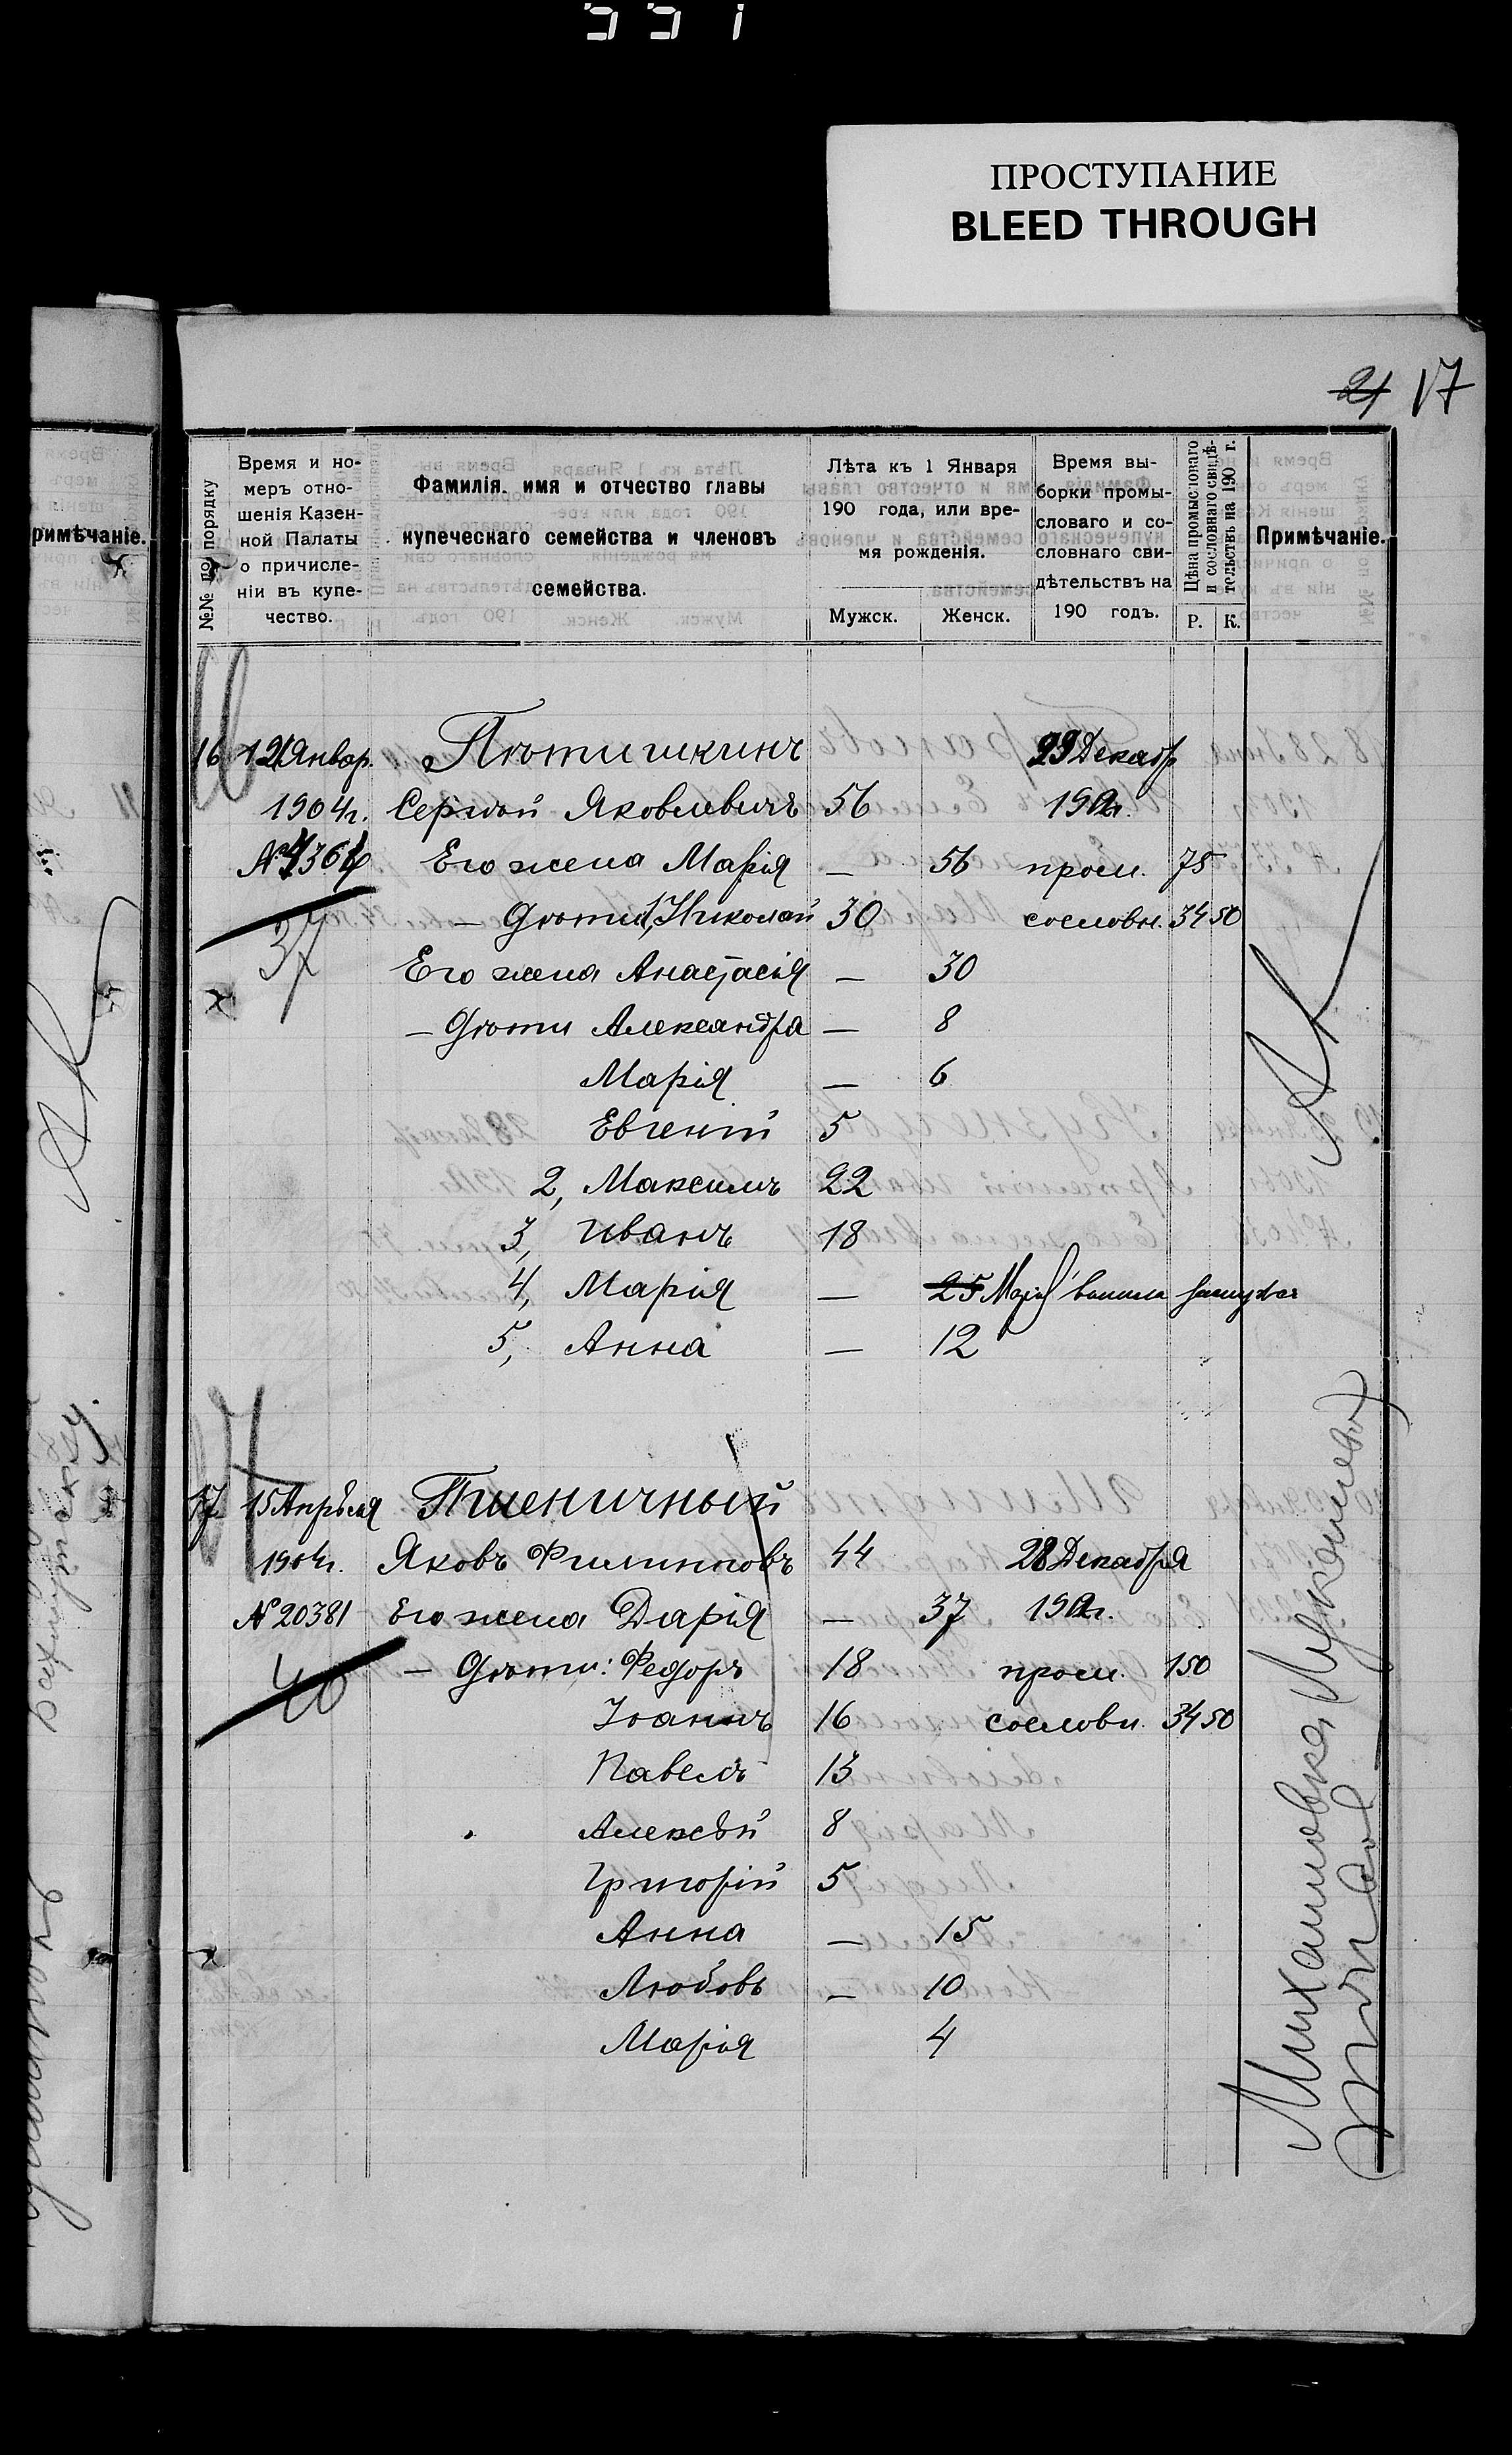 ПРОСТУПАНИЕ
BLEED THROUGH
17
римѣчаніе.
№№ по порядку
Время и но-
меръ отно-
шенія Казен-
ной Палаты
о причисле-
ніи въ купе-
чество.
Фамилія, имя и отчество главы
купеческаго семейства и членовъ
семейства.
Лѣта къ 1 Января
190 года, или вре-
мя рожденія.
Мужск. Женск.
Время вы-
борки промы-
словаго и со-
словнаго сви-
дѣтельствъ на
190 годъ.
Цѣна промысловаго
и сословнаго свидѣ-
тельствъ на 190 г.
Р. К.
Примѣчаніе.
16 Январ. Плотишкинъ Декабр
1904г. Сергѣй Яковлевичъ 56
Его жена Марія — 56 пром. 75
37
— Дѣти 1, Николай 30 сословн. 34 50
Его жена Анастасія — 30
— Дѣти Александра — 8
Марія — 6
Евгеній 5
2, Максимъ 22
3, Иванъ 18
4, Марія — 25 Марія вышла замужъ
5, Анна — 12
17 15 Апрѣля Пшеничный
1904г. Яковъ Филипповъ 44 28 Декабря
№ 20381 Его жена Дарія — 37
40
— Дѣти: Федоръ 18 пром. 150
Іоаннъ 16 сословн. 34 50
Павелъ 13
Алексѣй 8
Григорій 5
Анна — 15
Любовь — 10
Марія 4
Михайловка